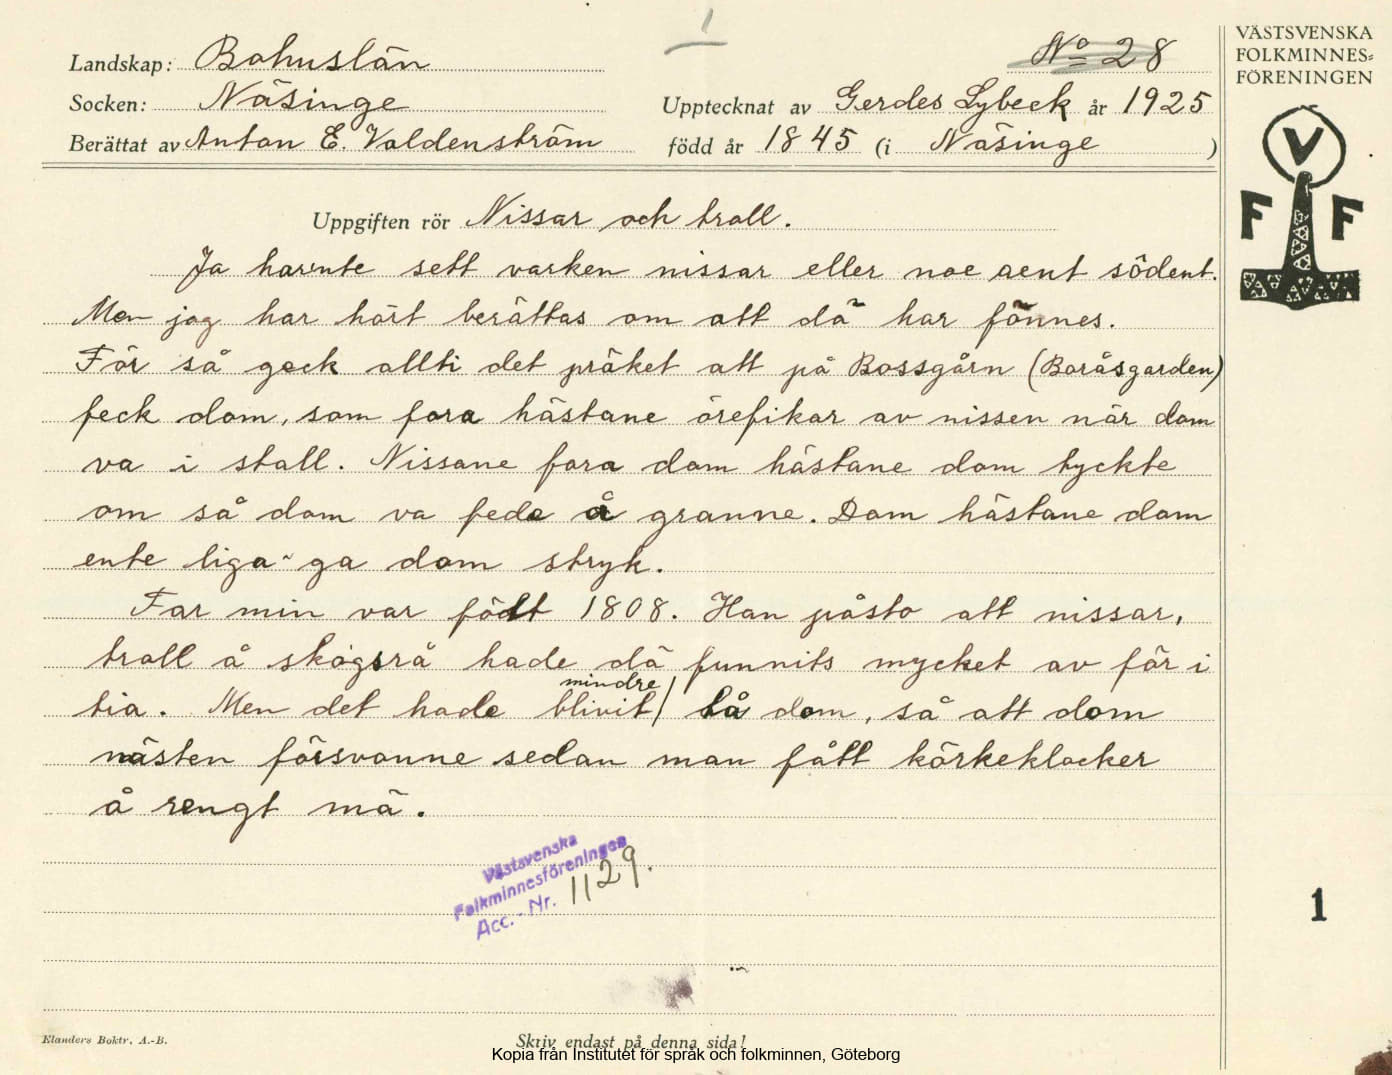 Landskap: Bohuslän
No 28
Socken: Näsinge
Upptecknat av Gerdes Lybeck år 1925
Berättat av Anton E. Valdenström
född år 1845 (i Näsinge )
VÄSTSVENSKA
FOLKMINNES-
FÖRENINGEN
V
F F
Uppgiften rör Nissar och troll.
Ja har'nte sett varken nissar eller noe aent södent.
Men jag har hört berättas om att dä har fönnes.
För så geck allti det präket att på Bossgårn (Boråsgarden)
feck dom, som fora hästane örefikar av nissen när dom
va i stall. Nissane fora dom hästane dom tyckte
om så dom va feda å granne. Dom hästane dom
ente liga ga dom stryk.
Far min var födt 1808. Han påsto att nissar,
troll å skogsrå hade dä funnits mycket av för i
tia. Men det hade blivit mindre tå dom, så att dom
nästen försvanne sedan man fått körkeklocker
å rengt mä.
Västsvenska
Folkminnesföreningen
Acc.-Nr. 1129.
1
Elanders Boktr. A.-B.
Skriv endast på denna sida!
Kopia från Institutet för språk och folkminnen, Göteborg